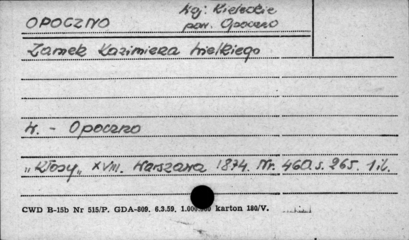 OPOCZNO
Woj: Kieleckie
pow. Opoczno
Zamek Kazimierza Wielkiego
W. - Opoczno
„Kłosy„ XVIII. Warszawa 1874. Nr. 460. s. 265. 1 il.
CWD B-15b Nr 515/P. GDA-809. 6.3.59, karton 180/V.